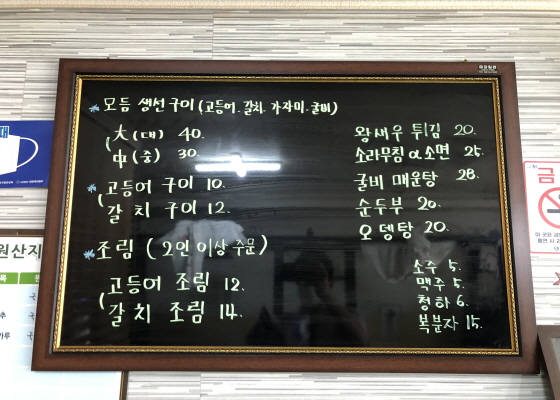 모듬 생선구이 (고등어. 갈치. 가자미. 굴비)
大 (대) 40.
中 (중) 30.
고등어 구이 10.
갈치 구이 12.
조림 (2인 이상 주문)
고등어 조림 12.
갈치 조림 14.
왕새우 튀김 20.
소라무침 α소면 25.
굴비 매운탕 28.
순두부 20.
오뎅탕 20.
소주 5.
맥주 5.
청하 6.
복분자 15.
원산지
금